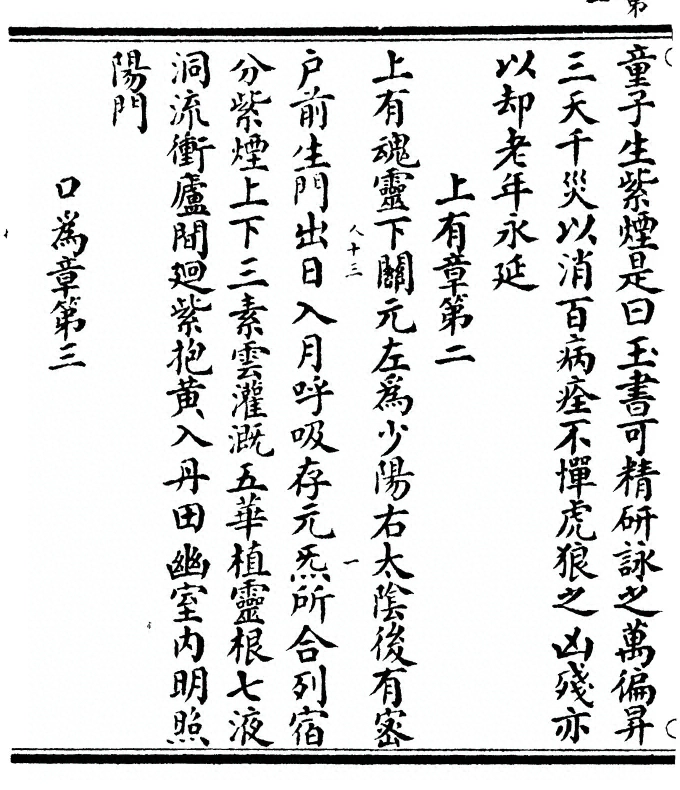 第
童子生紫煙是曰玉書可精研詠之萬徧昇
三天千災以消百病痊不憚虎狼之凶殘亦
以却老年永延
上有章第二
上有魂靈下關元左爲少陽右太陰後有密
户前生門出日入月呼吸存元炁所合列宿
人十三
一
分紫煙上下三素雲灌溉五華植靈根七液
洞流衝廬間廻紫抱黃入丹田幽室内明照
陽門
口爲章第三